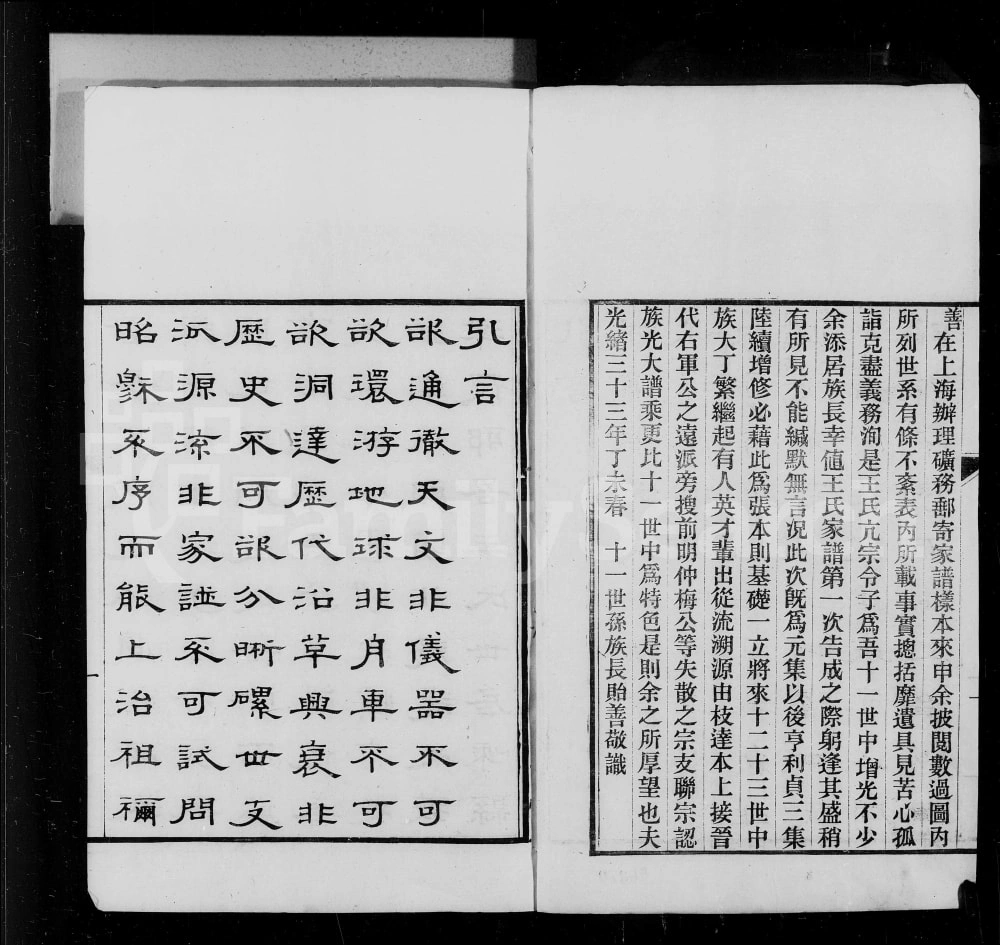 善在上海辦理礦務郵寄家譜樣本來申余披閱數過圖內
所列世系有條不紊表內所載事實摠括靡遺具見苦心孤
詣克盡義務洵是王氏亢宗令子爲吾十一世中增光不少
余添居族長幸値王氏家譜第一次告成之際躬逢其盛稍
有所見不能緘默無言況此次旣爲元集以後亨利貞三集
陸續增修必藉此爲張本則基礎一立將來十二十三世中
族大丁繁繼起有人英才輩出從流溯源由枝達本上接晉
代右軍公之遠派旁搜前明仲梅公等失散之宗支聯宗認
族光大譜乘更比十一世中爲特色是則余之所厚望也夫
光緒三十三年丁未春 十一世孫族長貽善敬識
引言
欲通徹天文非儀器不可
欲環游地球非舟車不可
欲洞達歷代沿革興衰非
歷史不可欲分晰礫世支
派源流非家譜不可試問
昭繇不序而能上治祖禰